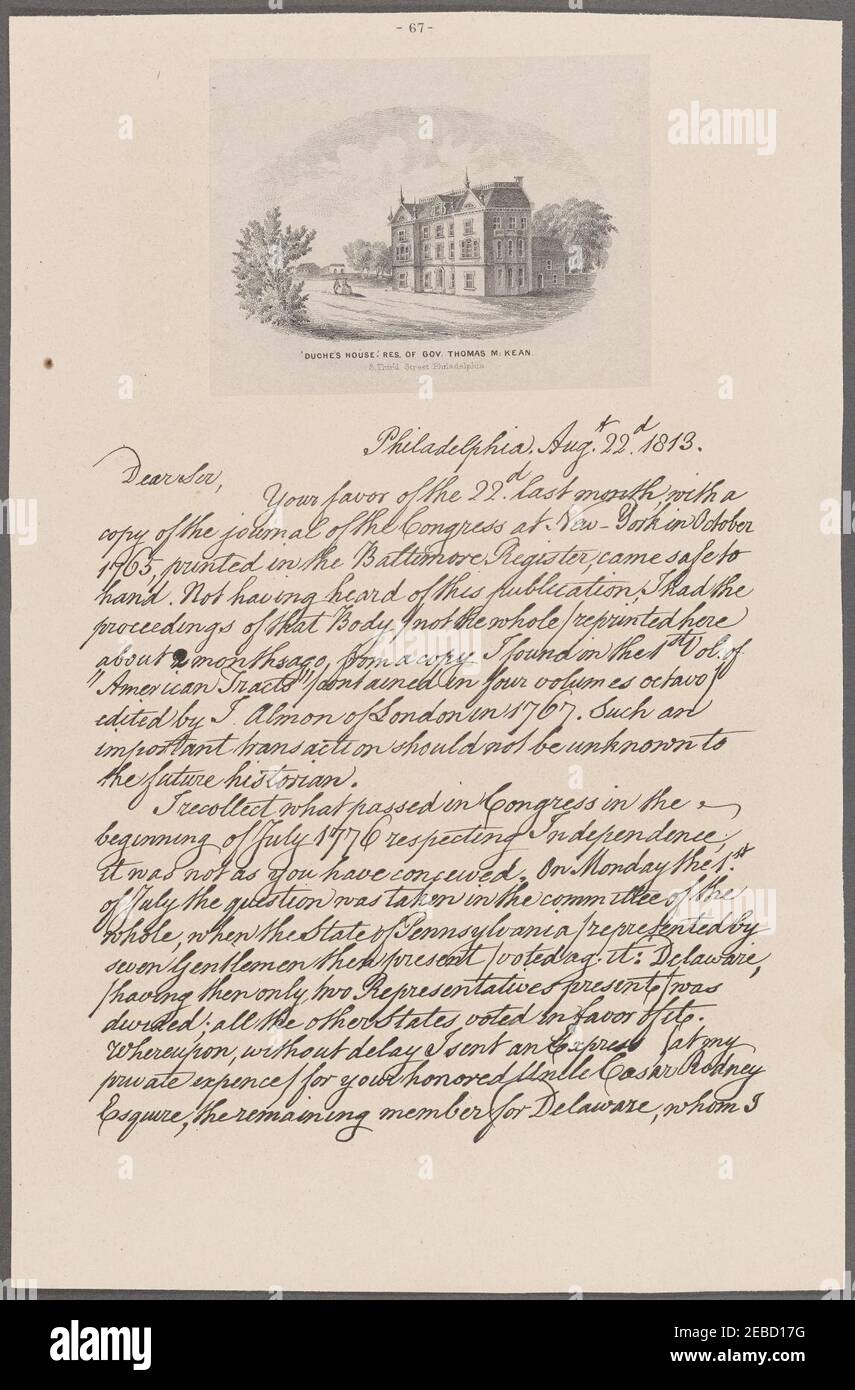 - 67 -
"DUCHE'S HOUSE." RES. OF GOV. THOMAS Mc KEAN.
S. Third Street Philadelphia
Philadelphia. Augt. 22d. 1813.
Dear Sir,
Your favor of the 22d. last month, with a
copy of the journal of the Congress at New-York in October
1765, printed in the Baltimore Register, came safe to
hand. Not having heard of this publication, I had the
proceedings of that Body /not the whole/ reprinted here
about 2 months ago, from a copy I found in the 1st Vol. of
"American Tracts" /contained in four volumes octavo/
edited by J. Almon of London in 1767. Such an
important transaction should not be unknown to
the future historian.
I recollect what passed in Congress in the
beginning of July 1776 respecting Independence;
it was not as you have conceived. On Monday the 1st.
of July the question was taken in the committee of the
whole, when the State of Pennsylvania /represented by
seven Gentlemen then present/ voted agt. it: Delaware,
/having then only two Representatives present/ was
divided: all the other States voted in favor of it.
Whereupon, without delay I sent an Express /at my
private expence/ for your honored Uncle Cæsar Rodney
Esquire, the remaining member for Delaware, whom I
alamy
Image ID: 2EBD17G
www.alamy.com